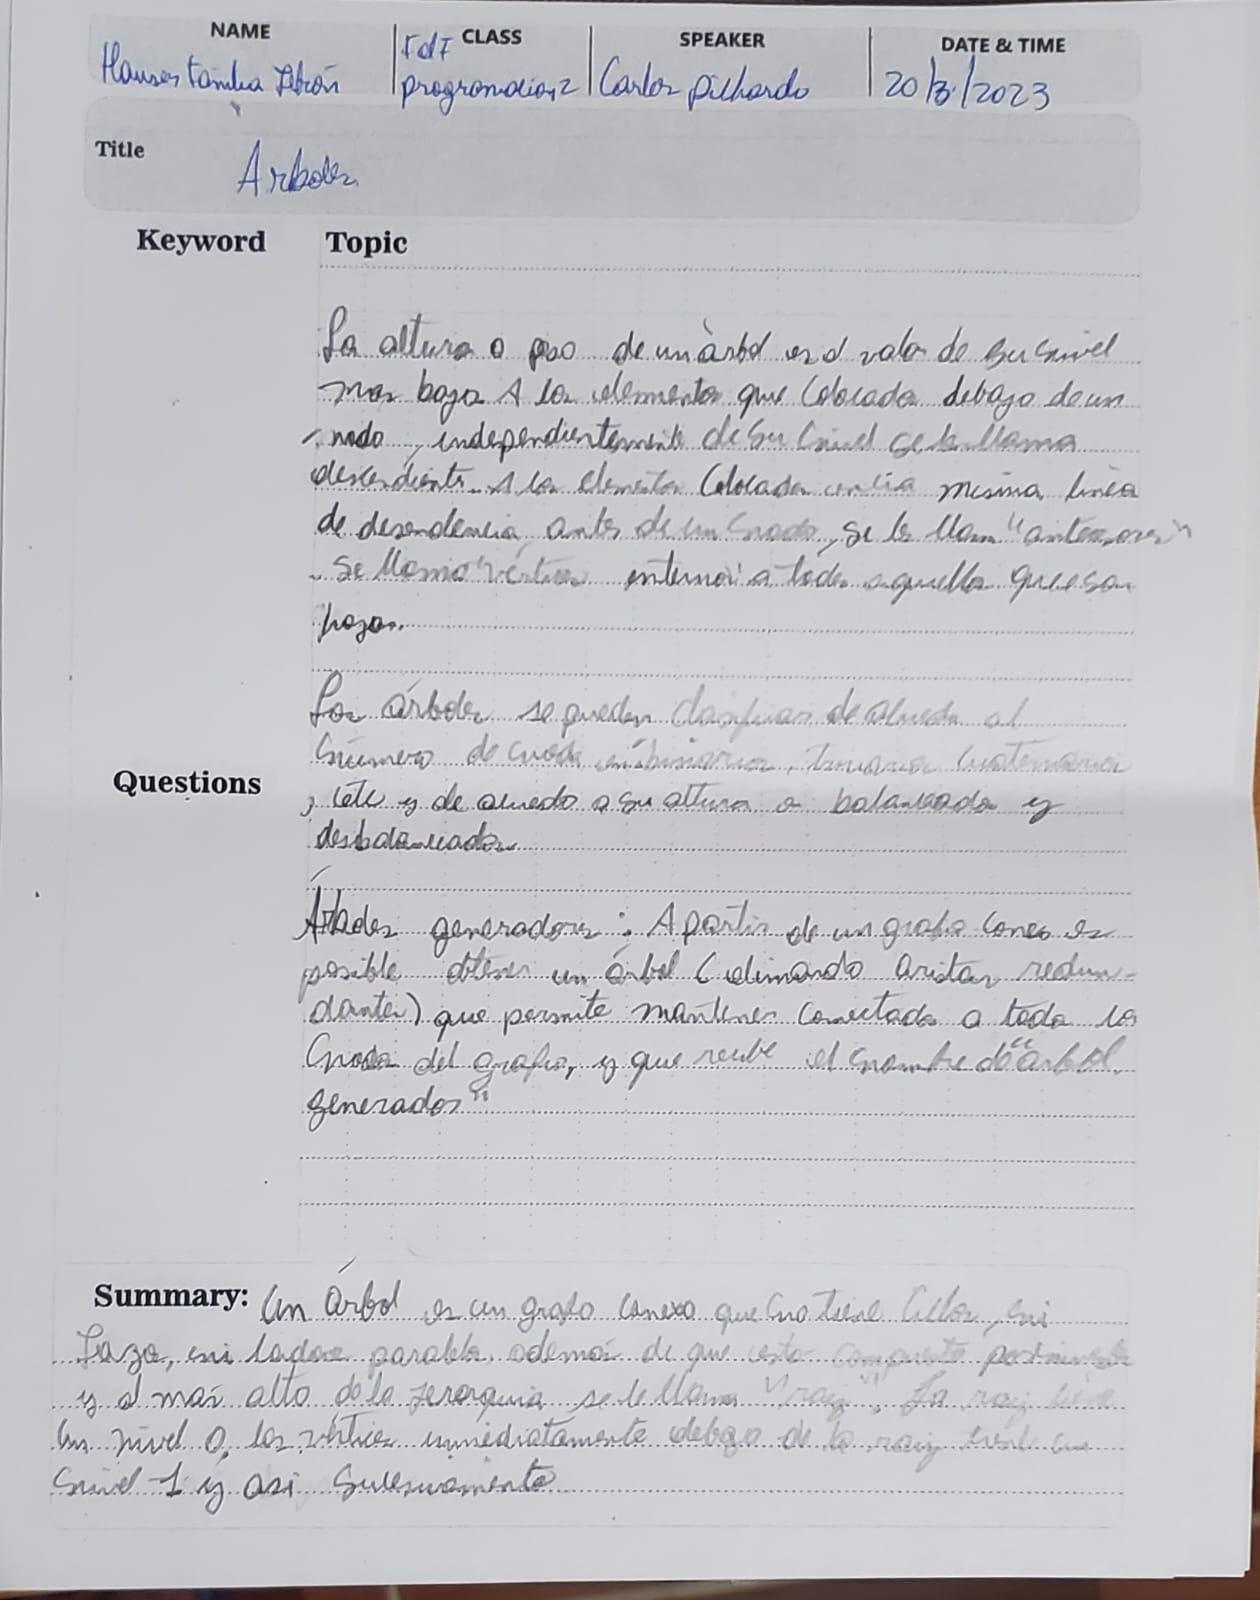 NAME
CLASS
SPEAKER
DATE & TIME
programacion 2
Carlos Pichardo
20/3/2023
Title
Arboles
Keyword
Topic
La altura o peso de un àrbol es el valor de su nivel
mas bajo A los elementos que colocados debajo de un
nodo, independientemente de su nivel se le llama
descendiente. A los elementos colocados en la misma linea
de desendencia, antes de un nodo, se le llam "antesores"
se llama vértices internos a todos aquellos que son
hojas.
Los árboles se pueden clasificas de acuerdo al
número de nodos en binarios, trinarios cuaternarios
, etc y de acuerdo a su altura a balanceados y
desbalanceados
Questions
Árboles generadores: A partir de un grafo conexo es
posible obtener un árbol (elimando aristas redun-
dantes) que permite mantener conectado a todo los
nodos del grafo, y que recibe el nombre de "arbol
generados"
Summary: Un árbol es un grafo conexo que no tiene ciclos, ni
lazo, ni lados paralelos, ademas de que esta compuesto por niveles
y el mas alto de la jerarquia se le llama "raiz". La raiz tiene
un nivel 0, los vértices inmediatamente debajo de la raiz tienen un
nivel 1 y asi sucesivamente